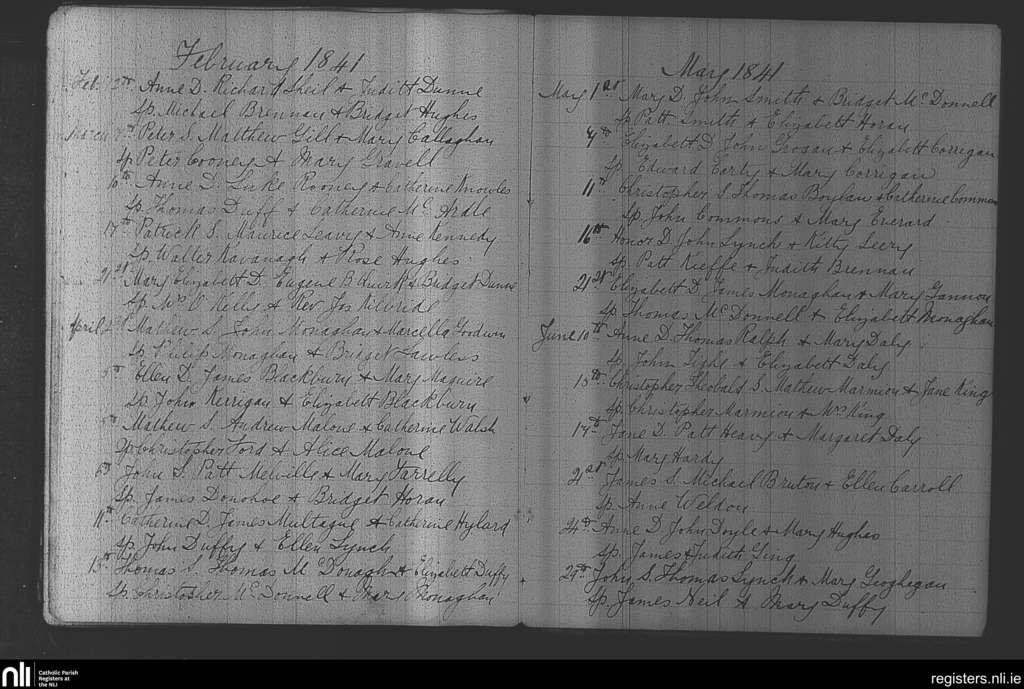 February 1841
Feb. 12th Anne D. Richard Sheil & Judith Dunne
Sp. Michael Brennan & Bridget Hughes
March 7th Peter S. Matthew Gill & Mary Callaghan
Sp. Peter Cooney & Mary Gravell
10th Anne D. Luke Rooney & Catherine Knowles
Sp. Thomas Duff & Catherine Mc Ardle
17th Patrick S. Maurice Leavy & Anne Kennedy
Sp. Walter Kavanagh & Rose Hughes
21st Mary Elizabeth D. Eugene Quirk & Bridget Dunne
Sp. Kells & Rev. Jos Kilbride
April Mathew S. John Monaghan & Marcella Goodwin
Sp. Philip Monaghan & Bridget Lawless
5th Ellen D. James Blackburn & Mary Maguire
Sp. John Kerrigan & Elizabeth Blackburn
Mathew S. Andrew Malone & Catherine Walsh
Sp. Christopher Ford & Alice Malone
6th John S. Patt Merville & Mary Farrelly
Sp. James Donohoe & Bridget Horan
11th Catherine D. James Multague & Catherine Hylard
Sp. John Duffy & Ellen Lynch
13th Thomas S. Thomas Mc Donagh & Elizabeth Duffy
Sp. Christopher Mc Donnell & Mary Monaghan
May 1841
May 1st Mary D. John Smith & Bridget Mc Donnell
Sp Patt Smith & Elizabeth Horan
9th Elizabeth D. John Crosan & Elizabeth Corrigan
Sp. Edward Early & Mary Corrigan
11th Christopher S. Thomas Boylan & Catherine Common
Sp. John Commons & Mary Everard
16th Honor D. John Lynch & Kitty Leery
Sp. Patt Kieffe & Judith Brennan
21st Elizabeth D. James Monaghan & Mary Gannon
Sp Thomas Mc Donnell & Elizabeth Monaghan
June 10th Anne D. Thomas Ralph & Mary Daly
Sp. John Tighe & Elizabeth Daly
15th Christopher Theobald S. Mathew Marmion & Jane King
Sp. Christopher Marmion & Mrs King
17th Jane D. Patt Heavy & Margaret Daly
Sp Mary Hardy
21st James S. Michael Bruton & Ellen Carroll
Sp. Anne Weldon
24th Anne D John Doyle & Mary Hughes
Sp. James & Judith Ging
29th John S. Thomas Lynch & Mary Geoghegan
Sp. James Neil & Mary Duffy
nli Catholic Parish
Registers at
the NLI
registers.nli.ie